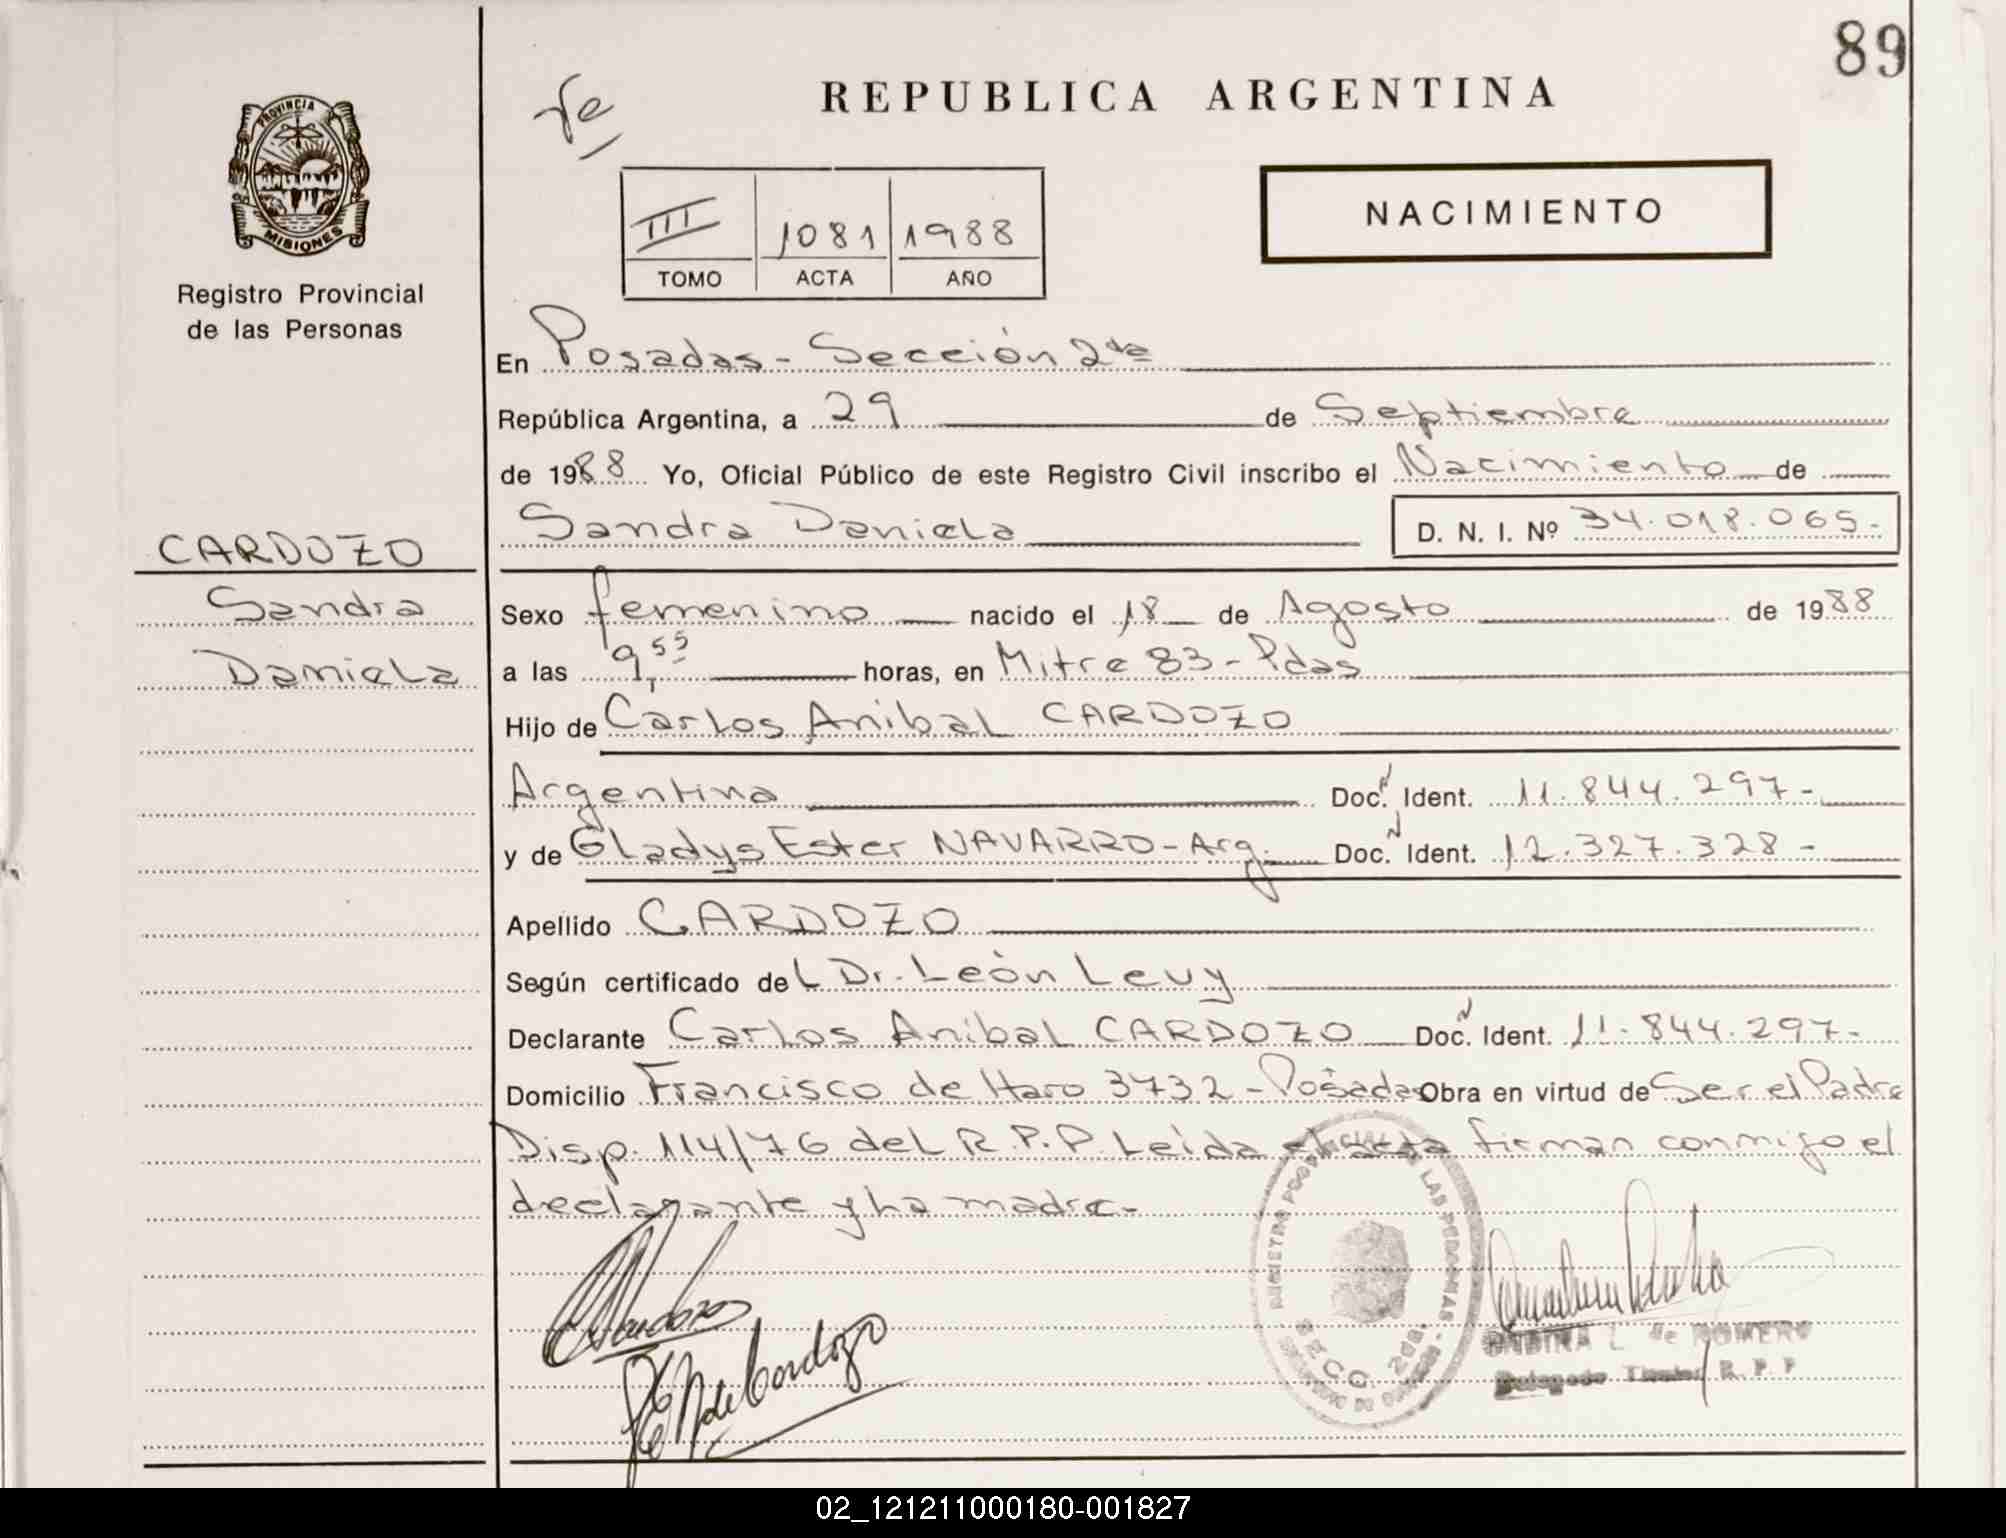 89
REPUBLICA ARGENTINA
PROVINCIA
MISIONES
Registro Provincial
de las Personas
III 1081 1988
TOMO ACTA AÑO
NACIMIENTO
En Posadas - Sección 2da
República Argentina, a 29 de Septiembre
de 1988 Yo, Oficial Público de este Registro Civil inscribo el Nacimiento de
Sandra Daniela D. N. I. Nº 34.018.065.-
CARDOZO
Sandra
Daniela
Sexo femenino nacido el 18 de Agosto de 1988
a las 9,55 horas, en Mitre 83 - Pdas
Hijo de Carlos Anibal CARDOZO
Argentina Doc. N Ident. 11.844.297-
y de Gladys Ester NAVARRO - Arg. Doc. N Ident. 12.327.328-
Apellido CARDOZO
Según certificado del Dr. León Levy
Declarante Carlos Anibal CARDOZO Doc. N Ident. 11.844.297-
Domicilio Francisco de Haro 3732 - Posadas Obra en virtud de Ser el Padre
Disp. 114/76 del R.P.P. Leída el acta firman conmigo el
declarante y la madre.-
SECC. 2da.
ONDINA L. de ROMERO
Delegado Titular R. P. P
02_121211000180-001827